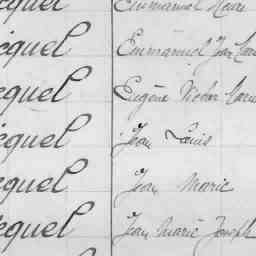 equel Emmanuel Henri
equel Emmanuel Jean
equel Eugène Victor
equel Jean Louis
equel Jean Marie
equel Jean Marie Joseph